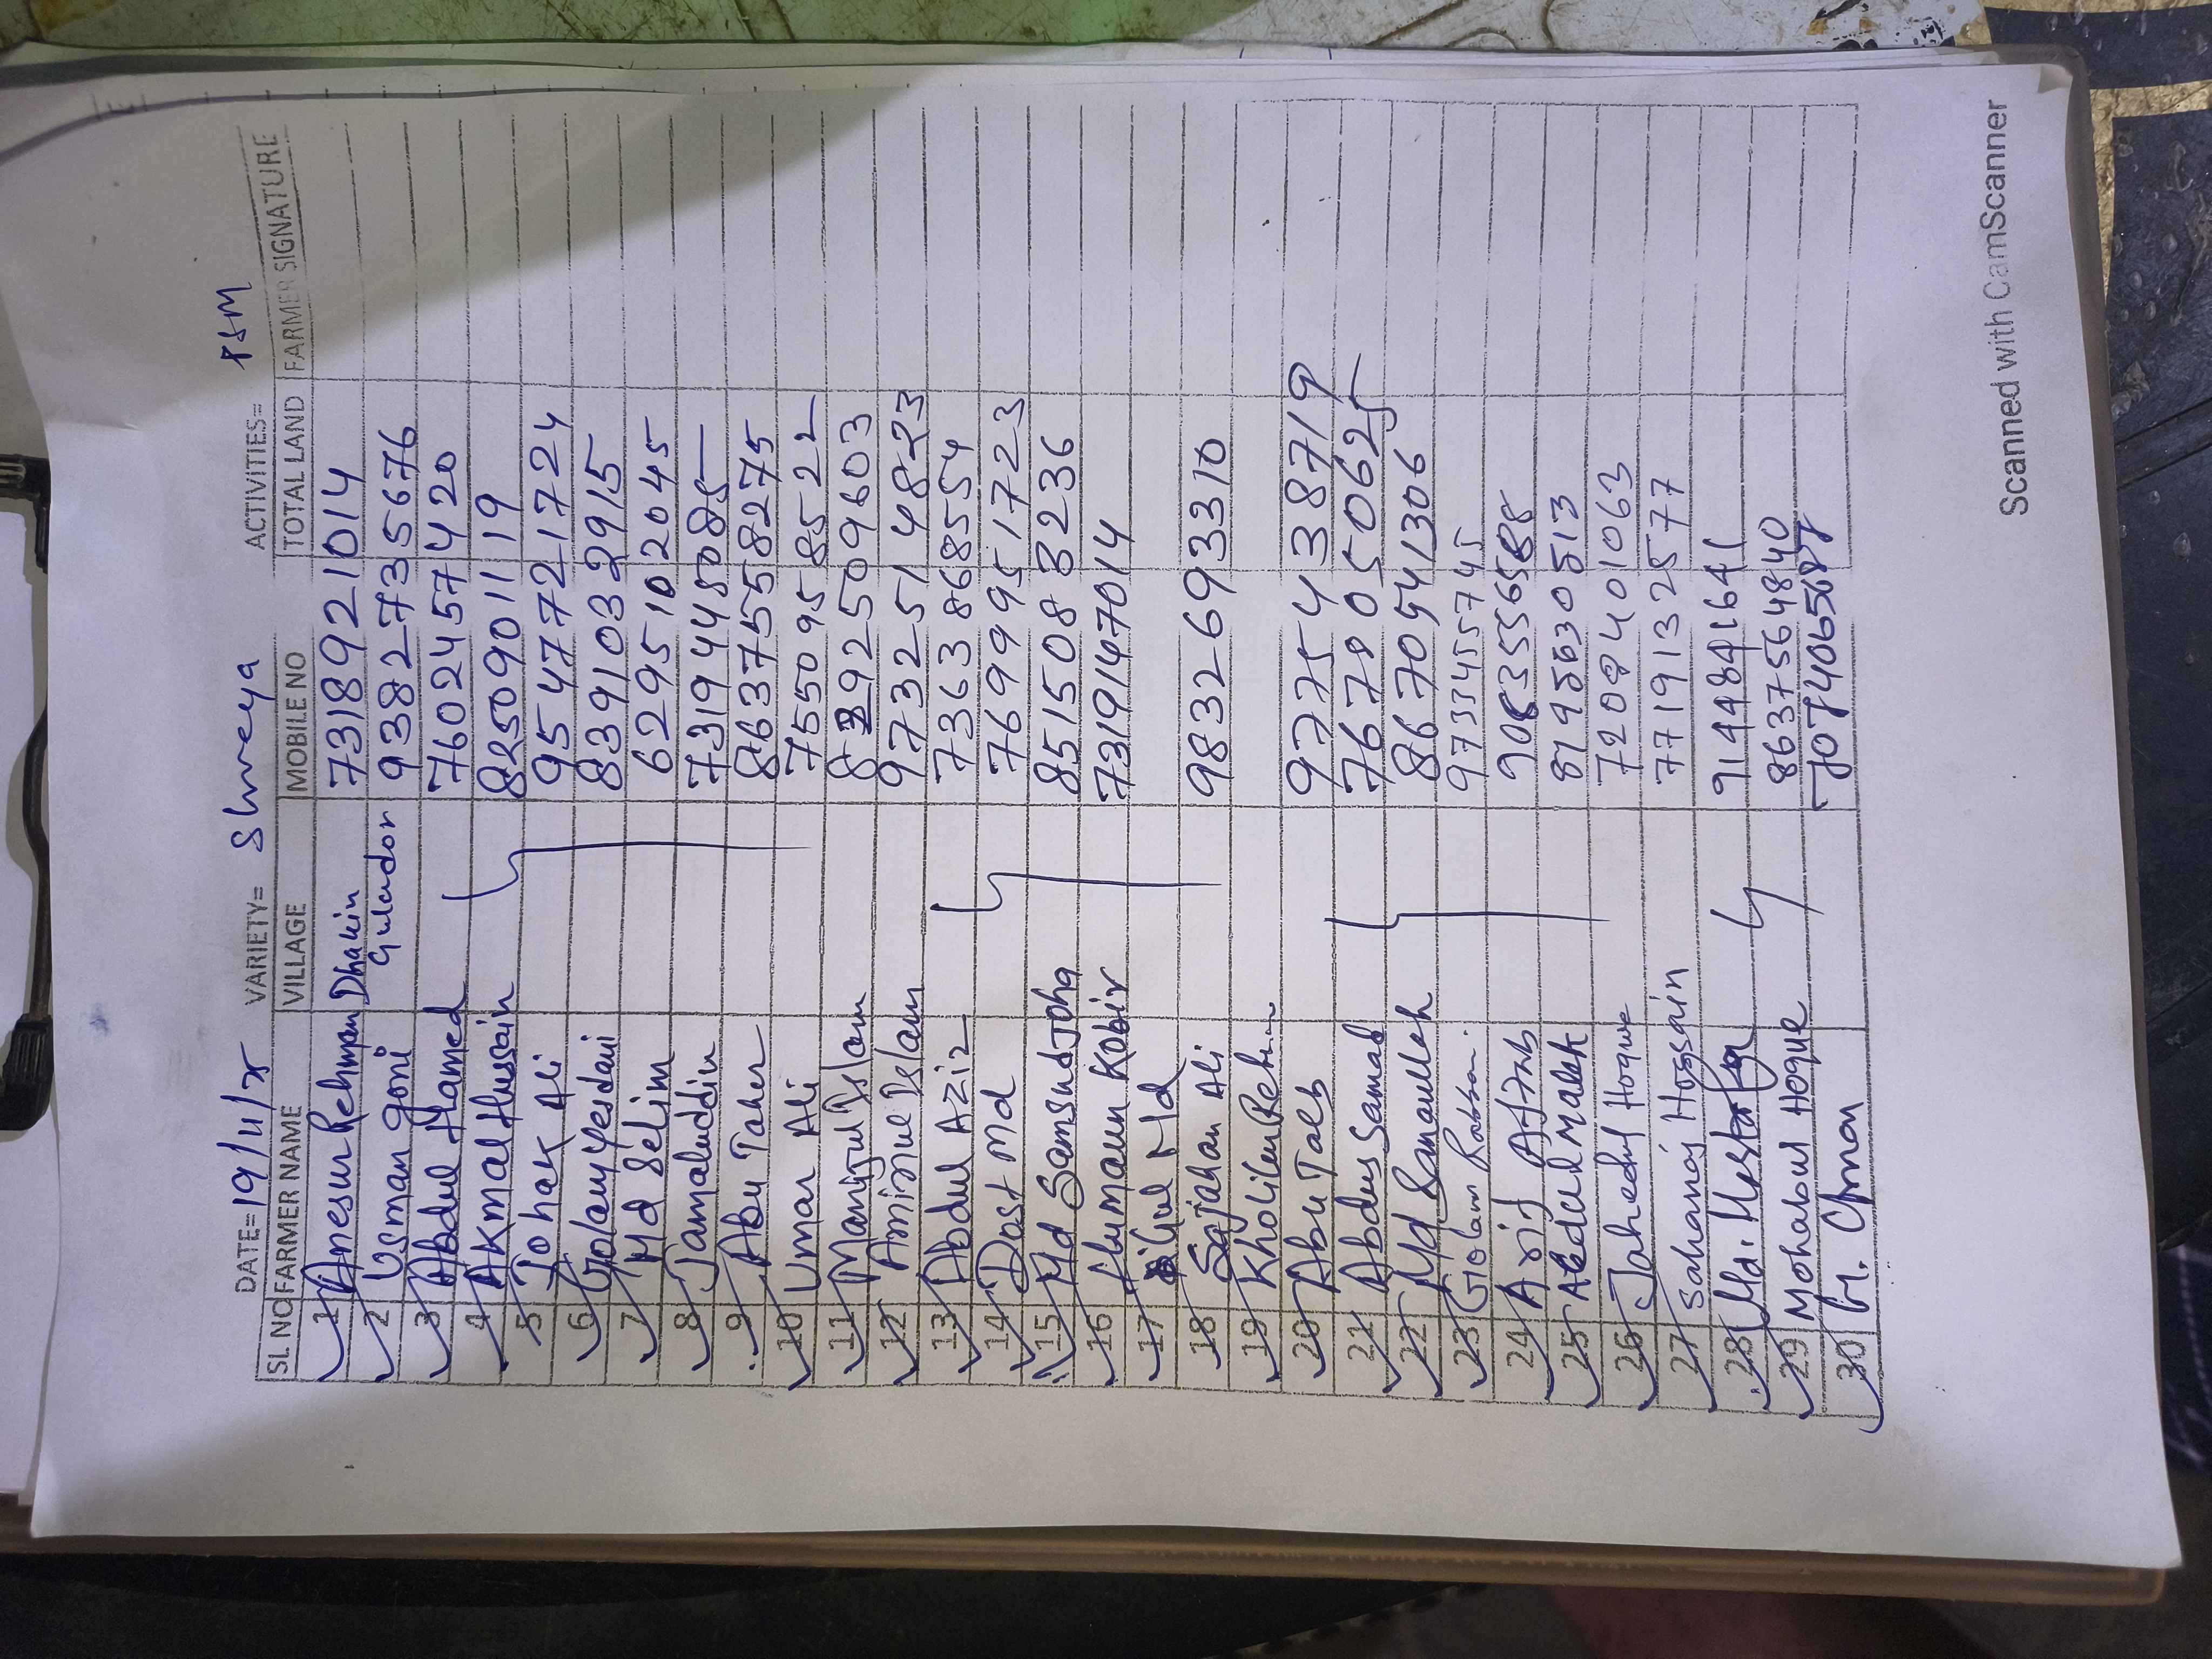 DATE= 19/11/x VARIETY= Shreya ACTIVITIES= PSM
SL NO FARMER NAME VILLAGE MOBILE NO TOTAL LAND FARMER SIGNATURE
1 Anesur Rehman Dhakin 7318921014
2 Usman goni Gulador 9382735676
3 Abdul Hamed 7602457420
4 Akmal Hussain 8250901119
5 Tohak Ali 9547721724
6 Golam Yesdani 8391032915
7 Md Selim 6295102045
8 Jamaluddin 7319445085
9 Abu Taher 8637558275
10 Umar Ali 7550958522
11 Manijul Islam 8392509603
12 Aminul Islam 9732514823
13 Abdul Aziz 7363868554
14 Dost Md 7699951723
15 Md Samsud Joha 8515083236
16 Humaun Kobir 7319147014
17 Md
18 Sajahan Ali 9832693310
19 Kholilur Rehman
20 Abu Taleb 9775438719
21 Abdus Samad 7679050625
22 Md Sanaullah 8670541306
23 Golam Rabbani 9733455745
24 Arif Aftab 9083556588
25 Abdul Malek 8195630513
26 Jahedul Hoque 7209401063
27 Sahanaj Hossain 7719132577
28 Md. 9144841641
29 Mohabul Hoque 8637564840
30 M. 7074065687
Scanned with CamScanner